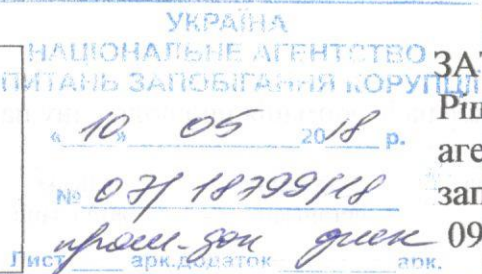 УКРАЇНА
НАЦІОНАЛЬНЕ АГЕНТСТВО
ПИТАНЬ ЗАПОБІГАННЯ КОРУПЦІЇ
« 10 » 05 2018 р.
№ 07/ 18799/18
Лист арк.додаток арк.
ЗАТ
Ріш
аге
зап
09